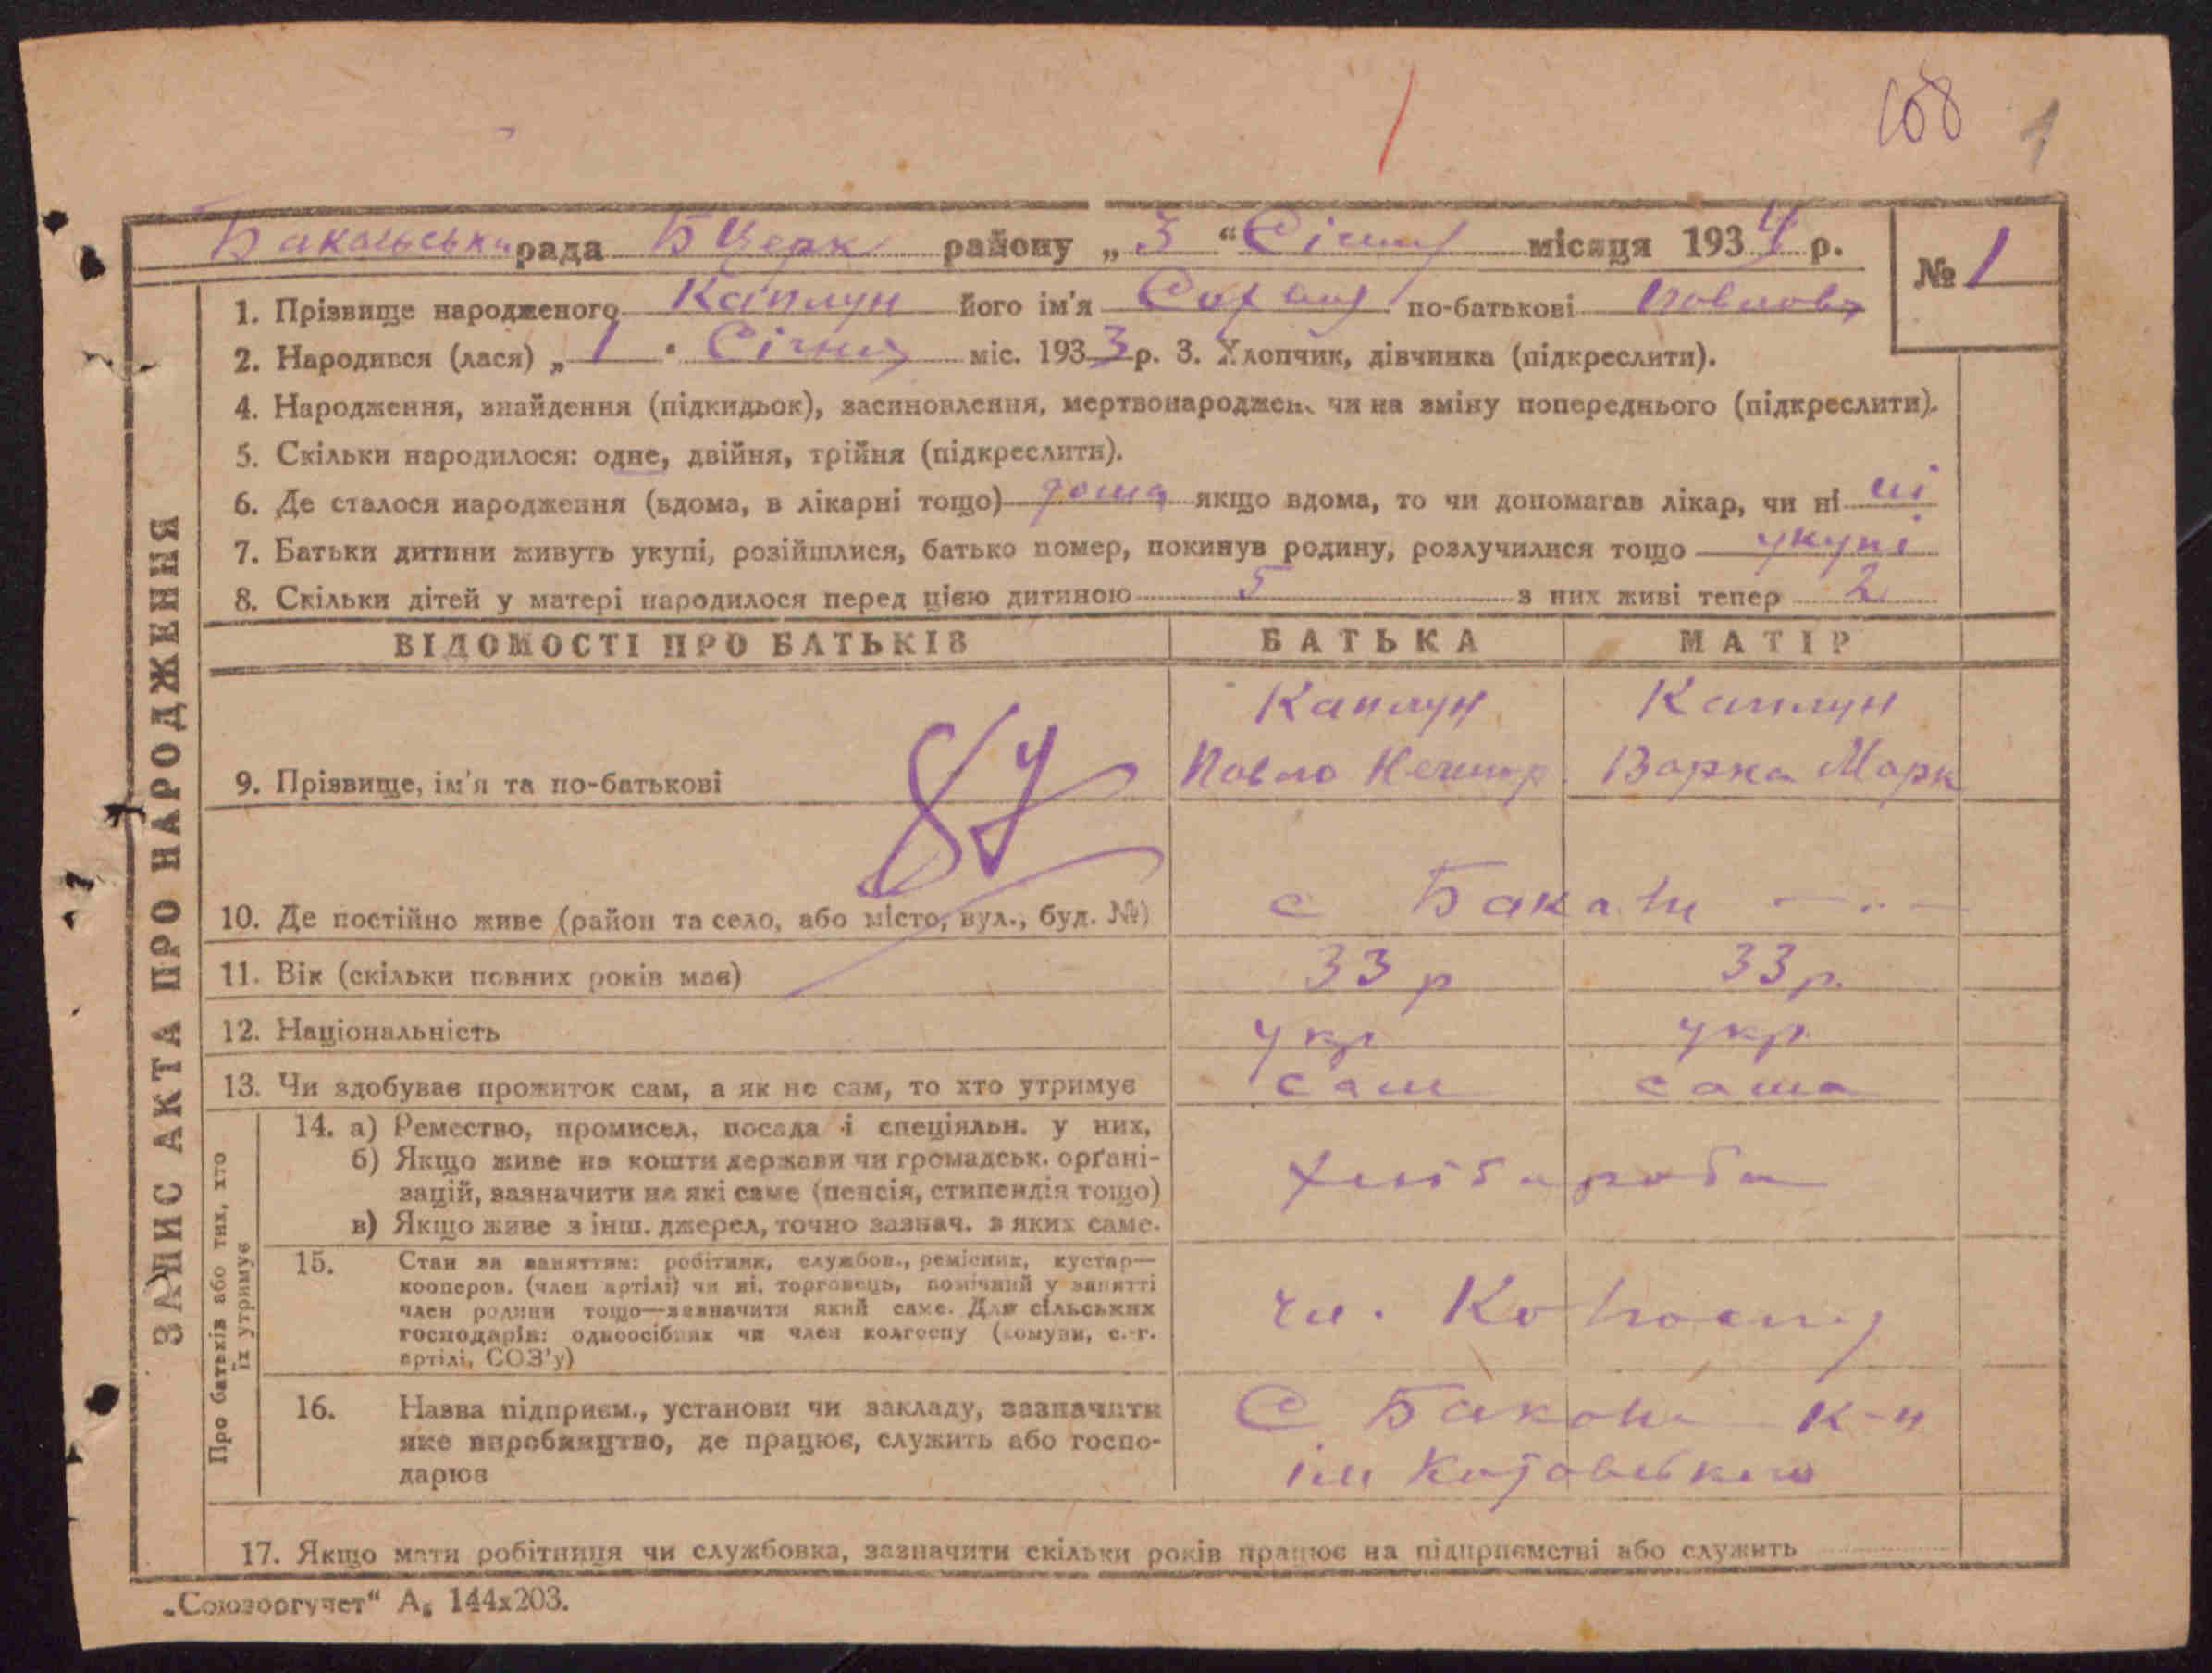 108 1
Бакальська рада Б Церк району „ 3 “ Січня місяця 1934 р.
№ 1
1. Прізвище народженого Каплун його ім'я по-батькові Повлова
2. Народився (лася) „ 1 " Січня міс. 1933 р. 3. Хлопчик, дівчинка (підкреслити).
4. Народження, знайдення (підкидьок), засиновлення, мертвонароджен. чи на зміну попереднього (підкреслити).
5. Скільки народилося: одне, двійня, трійня (підкреслити).
6. Де сталося народження (вдома, в лікарні тощо) дома якщо вдома, то чи допомагав лікар, чи ні ні
7. Батьки дитини живуть укупі, розійшлися, батько помер, покинув родину, розлучилися тощо укупі
8. Скільки дітей у матері народилося перед цією дитиною 5 з них живі тепер 2
ЗАПИС АКТА ПРО НАРОДЖЕННЯ
ВІДОМОСТІ ПРО БАТЬКІВ БАТЬКА МАТІР
Каплун Каплун
9. Прізвище, ім'я та по-батькові Повло Варка Марк
84
10. Де постійно живе (район та село, або місто, вул., буд. №) с Бакали — „ —
11. Вік (скільки повних років має) 33 р 33 р.
12. Національність укр укр
13. Чи здобуває прожиток сам, а як не сам, то хто утримує сам сама
Про батьків або тих, хто
їх утримує
14. а) Ремество, промисел, посада і спеціяльн. у них,
б) Якщо живе на кошти держави чи громадськ. орґані-
зацій, зазначити на які саме (пенсія, стипендія тощо) хлібароба
в) Якщо живе з інш. джерел, точно зазнач. з яких саме.
15. Стан за заняттям: робітник, службов., ремісник, кустар—
кооперов. (член артілі) чи ні, торговець, помічний у занятті
член родини тощо—зазначити який саме. Для сільських чл. Колгоспу
господарів: одноосібник чи член колгоспу (комуни, с.-г.
артілі, СОЗ'у)
16. Назва підприєм., установи чи закладу, зазначити С Бакали к-п
яке виробництво, де працює, служить або госпо-
дарює ім Котовського
17. Якщо мати робітниця чи службовка, зазначити скільки років працює на підприємстві або служить
„Союзоргучет“ А₅ 144х203.